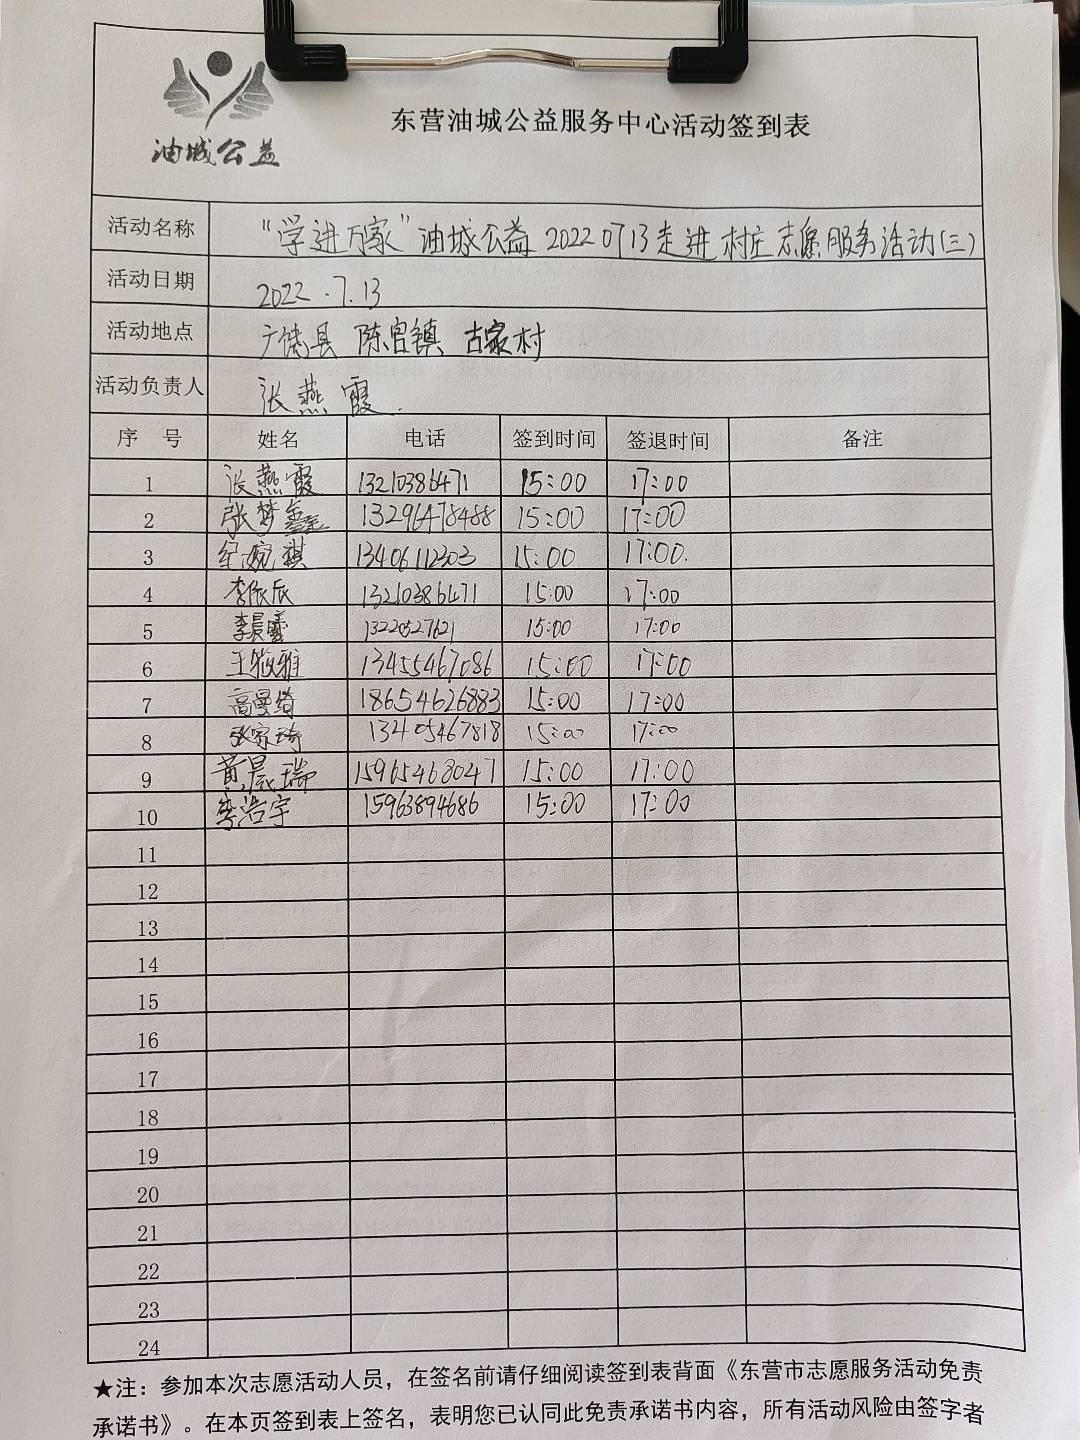 油城公益
东营油城公益服务中心活动签到表
活动名称 “学进万家”油城公益20220713走进村庄志愿服务活动(三)
活动日期 2022.7.13
活动地点 广饶县 陈官镇 古家村
活动负责人 张燕霞
序 号 姓名 电话 签到时间 签退时间 备注
1 张燕霞 13210386471 15:00 17:00
2 张梦鑫 13296478488 15:00 17:00
3 纪婉祺 13406112303 15:00 17:00.
4 李依辰 13210386471 15:00 17:00
5 李晨曦 13220527621 15:00 17:00
6 王筱雅 13455467086 15:00 17:00
7 高曼绮 18654626883 15:00 17:00
8 张家琦 13405467818 15:00 17:00
9 黄晟瑞 15965468047 15:00 17:00
10 李浩宇 15963894686 15:00 17:00
11
12
13
14
15
16
17
18
19
20
21
22
23
24
★注：参加本次志愿活动人员，在签名前请仔细阅读签到表背面《东营市志愿服务活动免责
承诺书》。在本页签到表上签名，表明您已认同此免责承诺书内容，所有活动风险由签字者